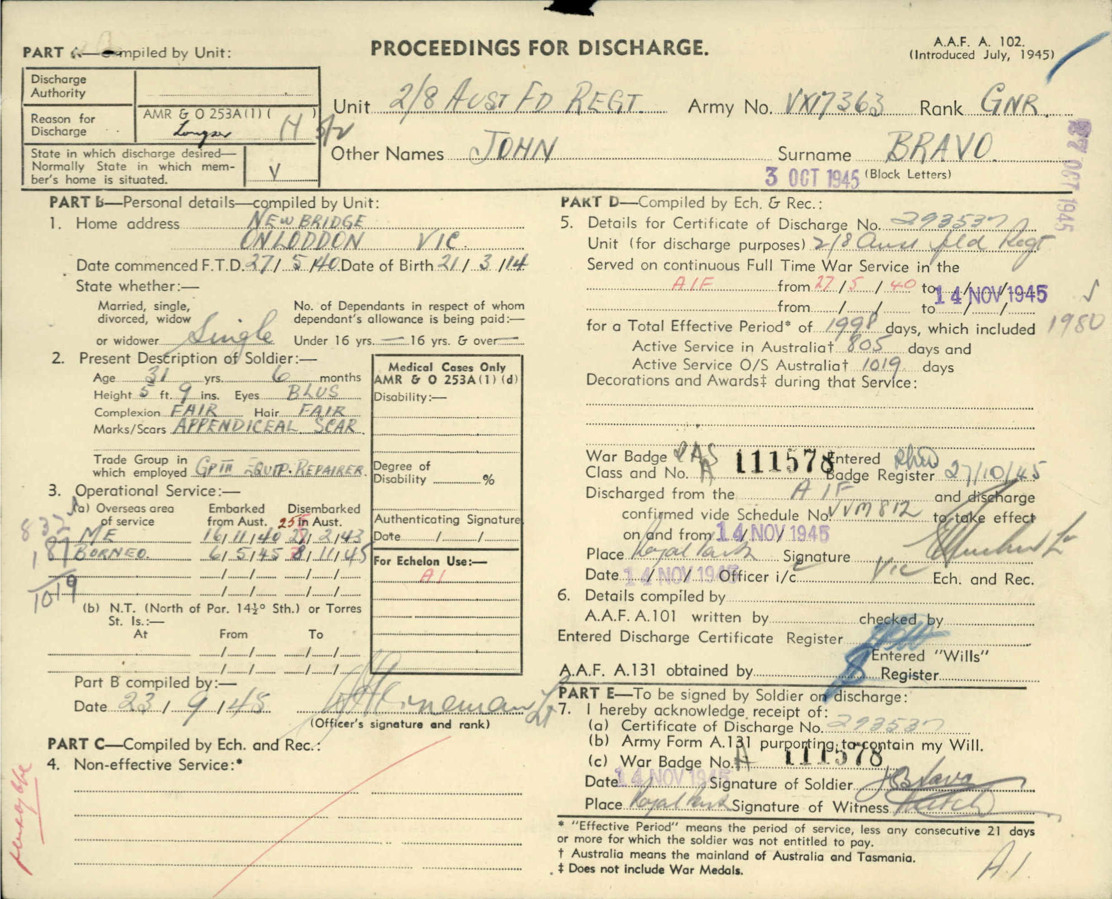 PROCEEDINGS FOR DISCHARGE.
A.A.F. A. 102.
(Introduced July, 1945)
PART A—Compiled by Unit:
Discharge Authority
Reason for Discharge
AMR & O 253A(1) ( H )
Longser
State in which discharge desired—
Normally State in which mem-
ber's home is situated.
V
Unit 2/8 AUST FD REGT. Army No. VX17363 Rank GNR.
Other Names JOHN Surname BRAVO.
(Block Letters)
3 OCT 1945
27 OCT 1945
PART B—Personal details—compiled by Unit:
1. Home address NEWBRIDGE
ON LODDON VIC.
Date commenced F.T.D. 27/5/40. Date of Birth 21/3/14
State whether:—
Married, single,
divorced, widow
or widower Single
No. of Dependants in respect of whom
dependant's allowance is being paid:—
Under 16 yrs. — 16 yrs. & over —
2. Present Description of Soldier:—
Age 31 yrs. 6 months
Height 5 ft. 9 ins. Eyes BLUS
Complexion FAIR Hair FAIR
Marks/Scars APPENDICEAL SCAR
Trade Group in
which employed GP III EQUIP. REPAIRER
Medical Cases Only
AMR & O 253A(1) (d)
Disability:—
Degree of
Disability %
Authenticating Signature
Date / /
For Echelon Use:—
A1
3. Operational Service:—
(a) Overseas area
of service
Embarked
from Aust.
Disembarked
in Aust.
25
M E 16/11/40 2/43
BORNEO 6/5/45 8/11/45
832
187
1019
(b) N.T. (North of Par. 14½° Sth.) or Torres
St. Is.:—
At From To
Part B compiled by:—
Date 23/9/45
(Officer's signature and rank)
PART C—Compiled by Ech. and Rec.:
4. Non-effective Service:*
PART D—Compiled by Ech. & Rec.:
5. Details for Certificate of Discharge No. 293537
Unit (for discharge purposes) 2/8 Aust fld Regt
Served on continuous Full Time War Service in the
AIF from 27/5/40 to 14 NOV 1945
from / / to / /
for a Total Effective Period* of 1998 days, which included 1980
Active Service in Australia† 805 days and
Active Service O/S Australia† 1019 days
Decorations and Awards‡ during that Service:
War Badge RAS Entered
Class and No. A 111578 Badge Register 27/10/45
Discharged from the AIF and discharge
confirmed vide Schedule No. VVM812 to take effect
on and from 14 NOV 1945
Place Royal Park Signature
Date 14 NOV 1945 Officer i/c Vic Ech. and Rec.
6. Details compiled by
A.A.F. A.101 written by checked by
Entered Discharge Certificate Register
Entered "Wills"
A.A.F. A.131 obtained by Register
PART E—To be signed by Soldier on discharge:
7. I hereby acknowledge receipt of:
(a) Certificate of Discharge No. 293537
(b) Army Form A.131 purporting to contain my Will.
(c) War Badge No. A 111578
Date 14 NOV 1945 Signature of Soldier J Bravo
Place Royal Park Signature of Witness
* "Effective Period" means the period of service, less any consecutive 21 days
or more for which the soldier was not entitled to pay.
† Australia means the mainland of Australia and Tasmania.
‡ Does not include War Medals.
A.1.